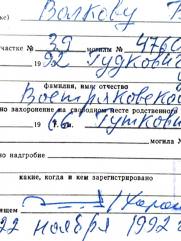 Волкову В
участке № 39 могилы № 476
1992 Гудкови
фамилия, имя, отчество
Востряковско
но захоронение на свободном месте родственного
1966 Гуткови
могила №
но надгробие
какие, когда и кем зарегистрировано
ящем
22 ноября 1992 г